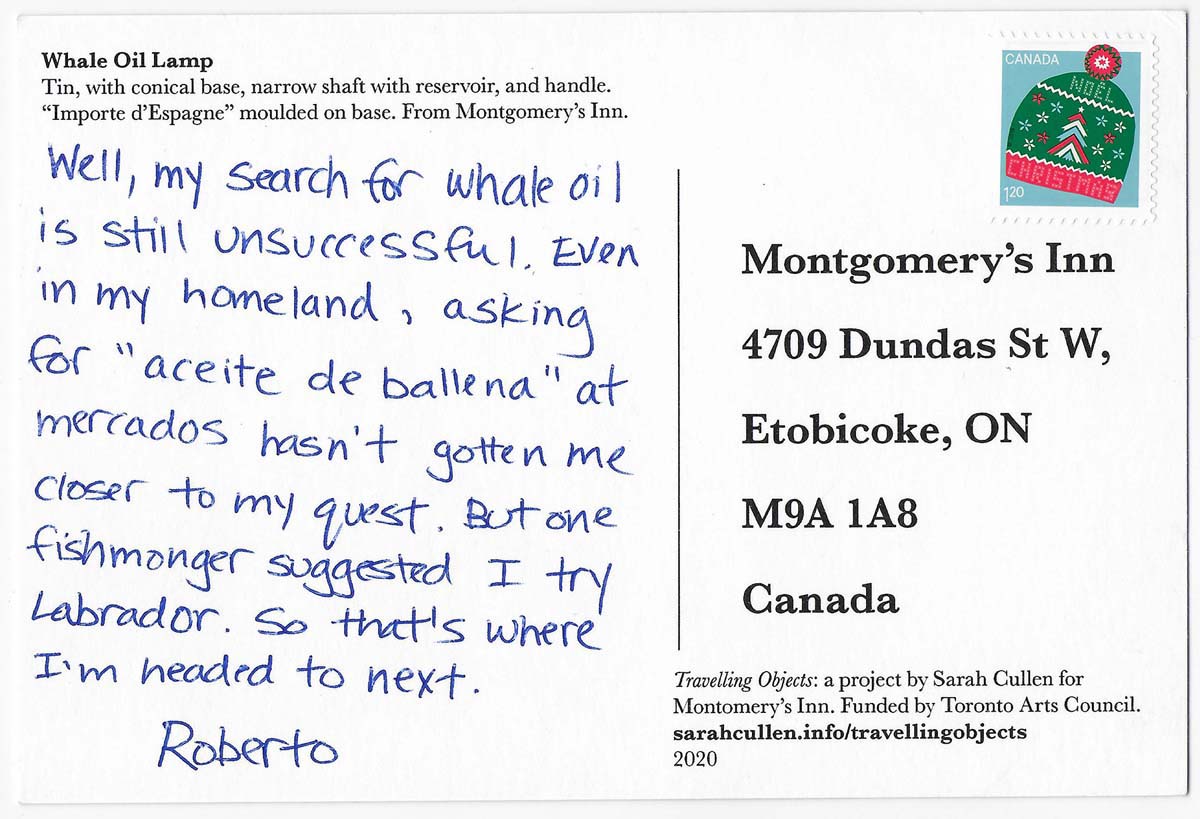 Whale Oil Lamp
Tin, with conical base, narrow shaft with reservoir, and handle.
“Importe d’Espagne” moulded on base. From Montgomery’s Inn.
Well, my search for whale oil
is still unsuccessful. Even
in my homeland, asking
for "aceite de ballena" at
mercados hasn't gotten me
closer to my quest. But one
fishmonger suggested I try
Labrador. So that's where
I'm headed to next.
Roberto
CANADA
NOËL
CHRISTMAS
1.20
Montgomery’s Inn
4709 Dundas St W,
Etobicoke, ON
M9A 1A8
Canada
Travelling Objects: a project by Sarah Cullen for
Montomery’s Inn. Funded by Toronto Arts Council.
sarahcullen.info/travellingobjects
2020